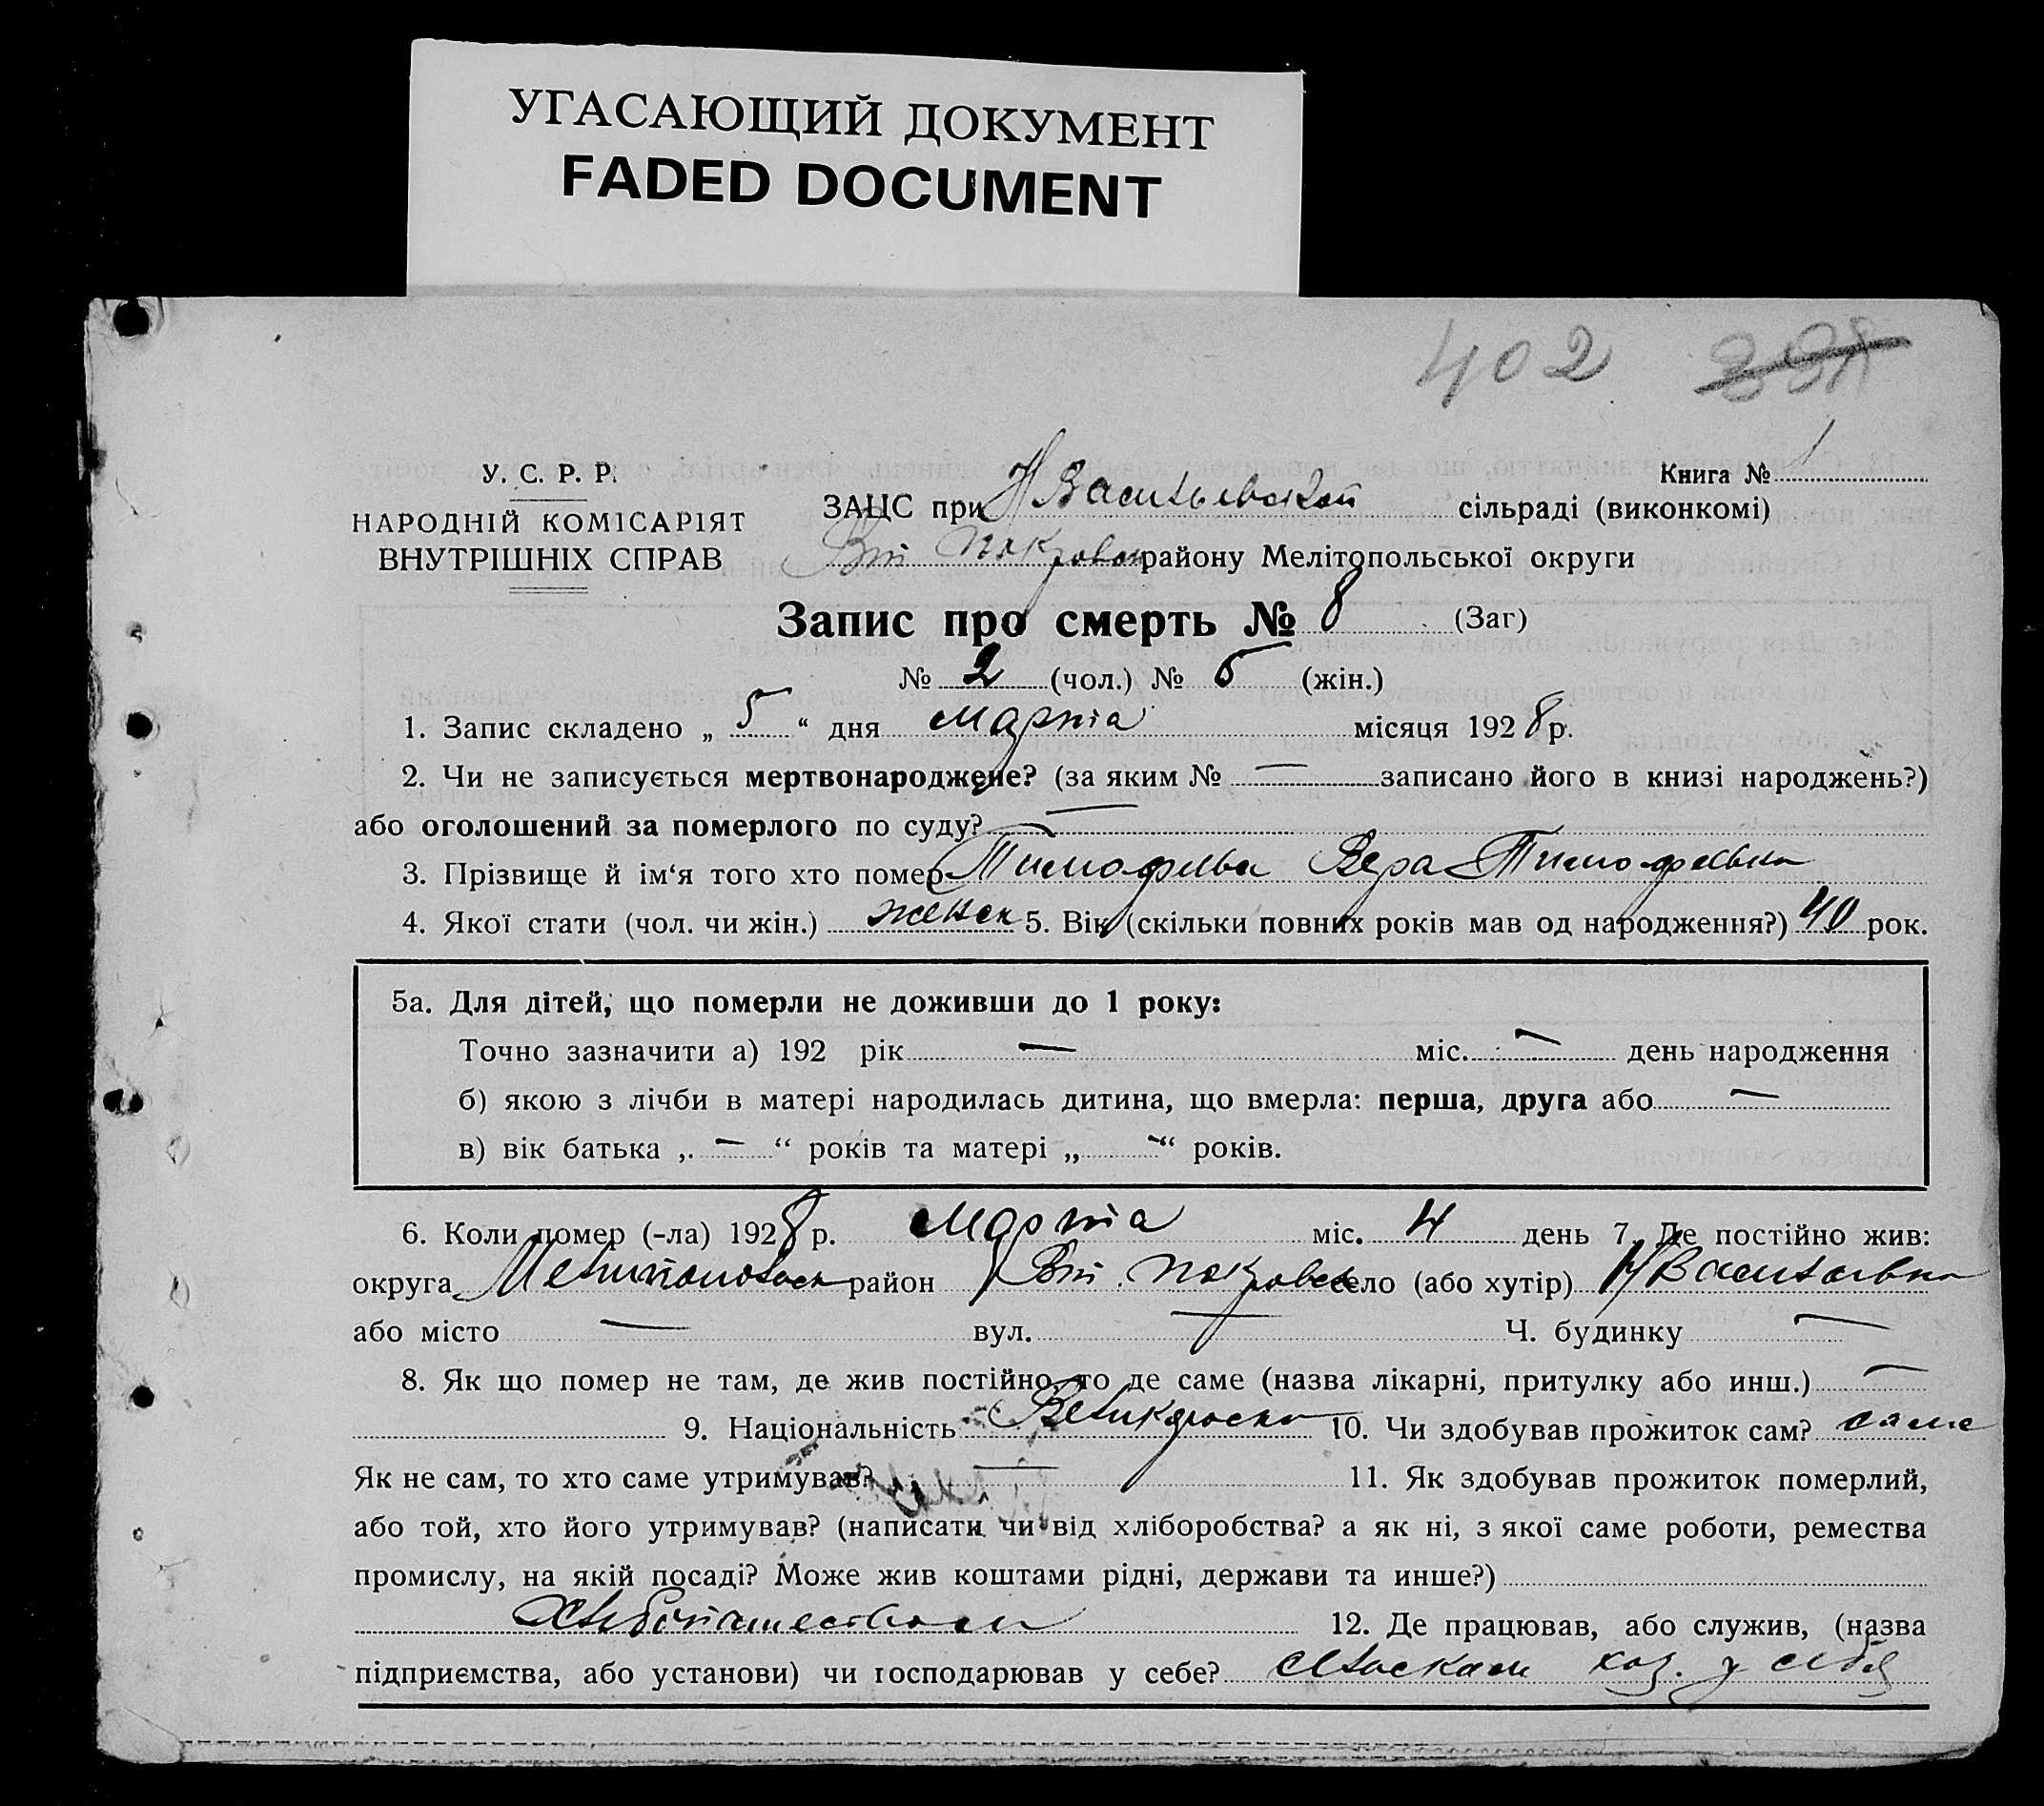 УГАСАЮЩИЙ ДОКУМЕНТ
FADED DOCUMENT
402
Книга № 1
У. С. Р. Р.
НАРОДНІЙ КОМІСАРІЯТ
ВНУТРІШНІХ СПРАВ
ЗАЦС при Н Васильевской сільраді (виконкомі)
Вт Покровск району Мелітопольської округи
Запис про смерть № 8 (Заг)
№ 2 (чол.) № 6 (жін.)
1. Запис складено „ 5 “ дня марта місяця 1928 р.
2. Чи не записується мертвонароджене? (за яким № — записано його в книзі народжень?)
або оголошений за померлого по суду? —
3. Прізвище й ім‘я того хто помер Тимофеева Вера Тимофеевна
4. Якої стати (чол. чи жін.) женск 5. Вік (скільки повних років мав од народження?) 40 рок.
5а. Для дітей, що померли не доживши до 1 року:
Точно зазначити а) 192 рік — міс. — день народження
б) якою з лічби в матері народилась дитина, що вмерла: перша, друга або —
в) вік батька „ — “ років та матері „ — “ років.
6. Коли помер (-ла) 1928 р. марта міс. 4 день 7. Де постійно жив:
округа Мелитопольск район Вт. Покровск село (або хутір) Н Васильевка
або місто — вул. — Ч. будинку —
8. Як що помер не там, де жив постійно, то де саме (назва лікарні, притулку або инш.) —
9. Національність Великоросска 10. Чи здобував прожиток сам? сама
Як не сам, то хто саме утримував? — 11. Як здобував прожиток померлий,
або той, хто його утримував? (написати чи від хліборобства? а як ні, з якої саме роботи, ремества
промислу, на якій посаді? Може жив коштами рідні, держави та инше?)
Хлебопашеством 12. Де працював, або служив, (назва
підприємства, або установи) чи господарював у себе? сельским хоз. у себя